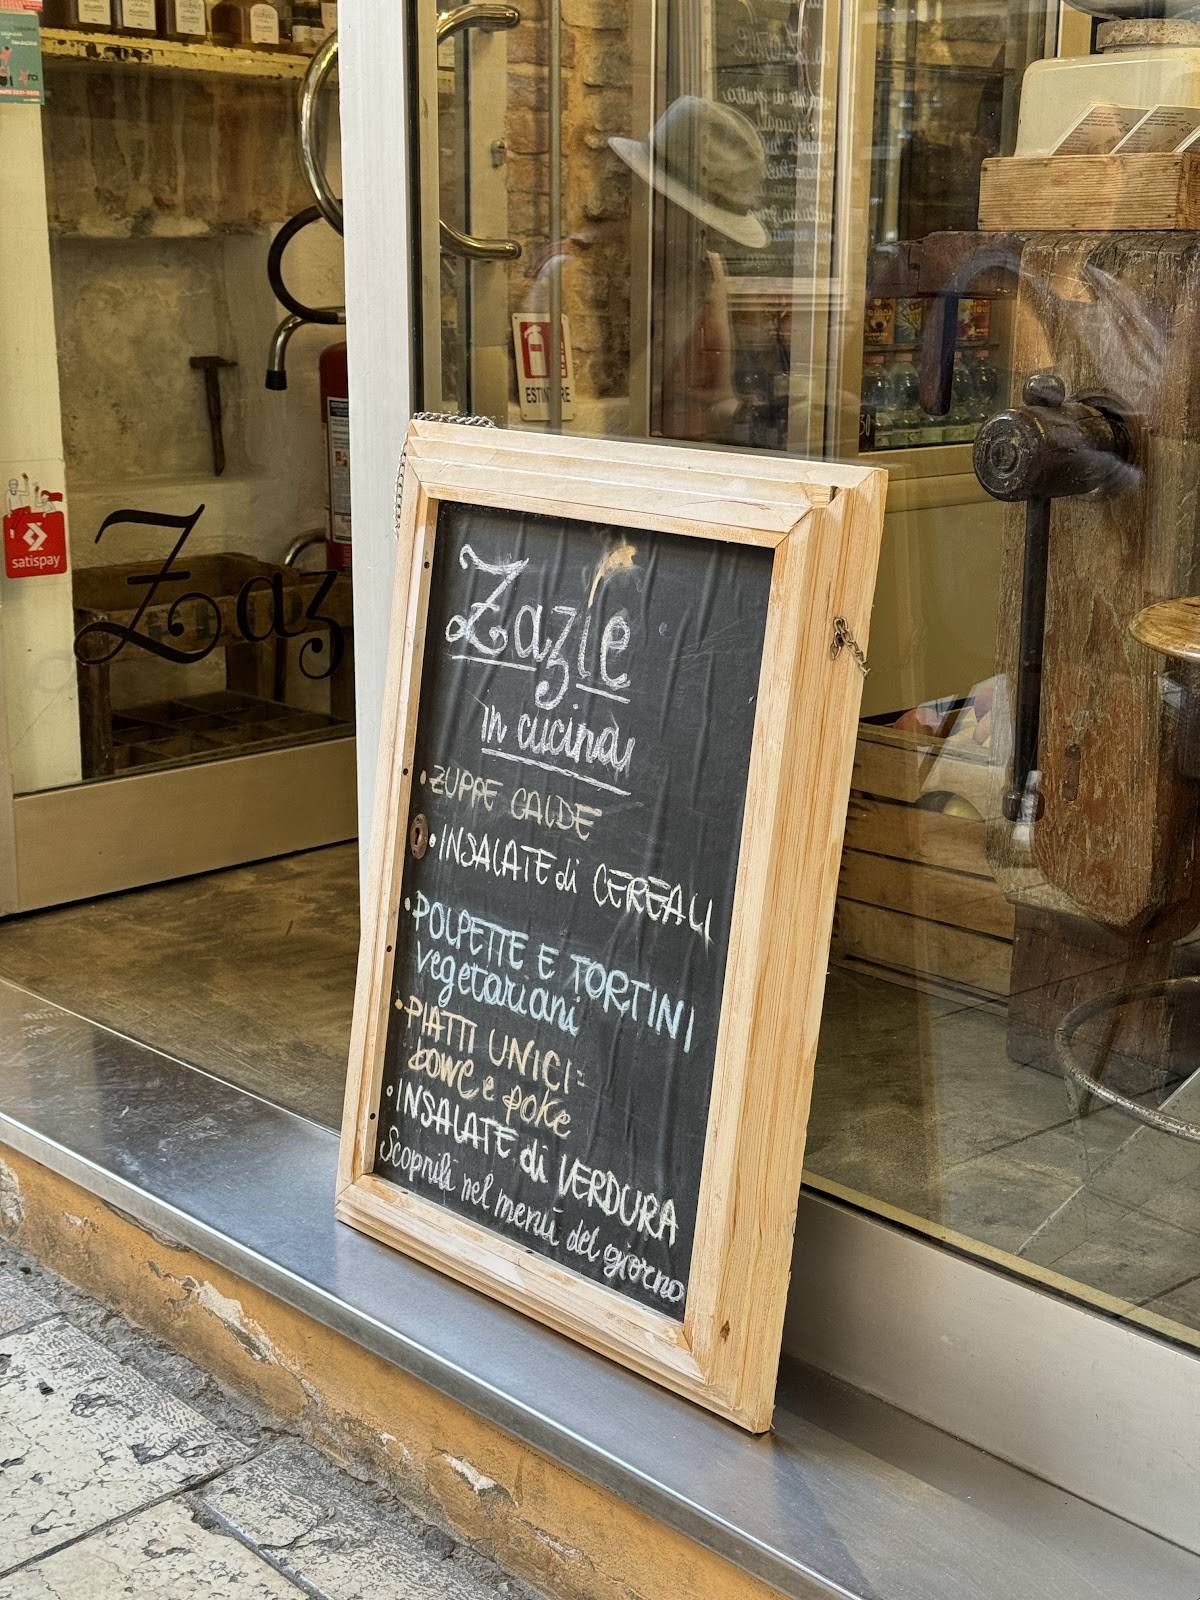 Zazie
in cucina
• ZUPPE CALDE
• INSALATE di CEREALI
• POLPETTE E TORTINI
vegetariani
• PIATTI UNICI:
bowl e poke
• INSALATE di VERDURA
Scoprili nel menù del giorno
Zaz
satispay
ESTINTORE